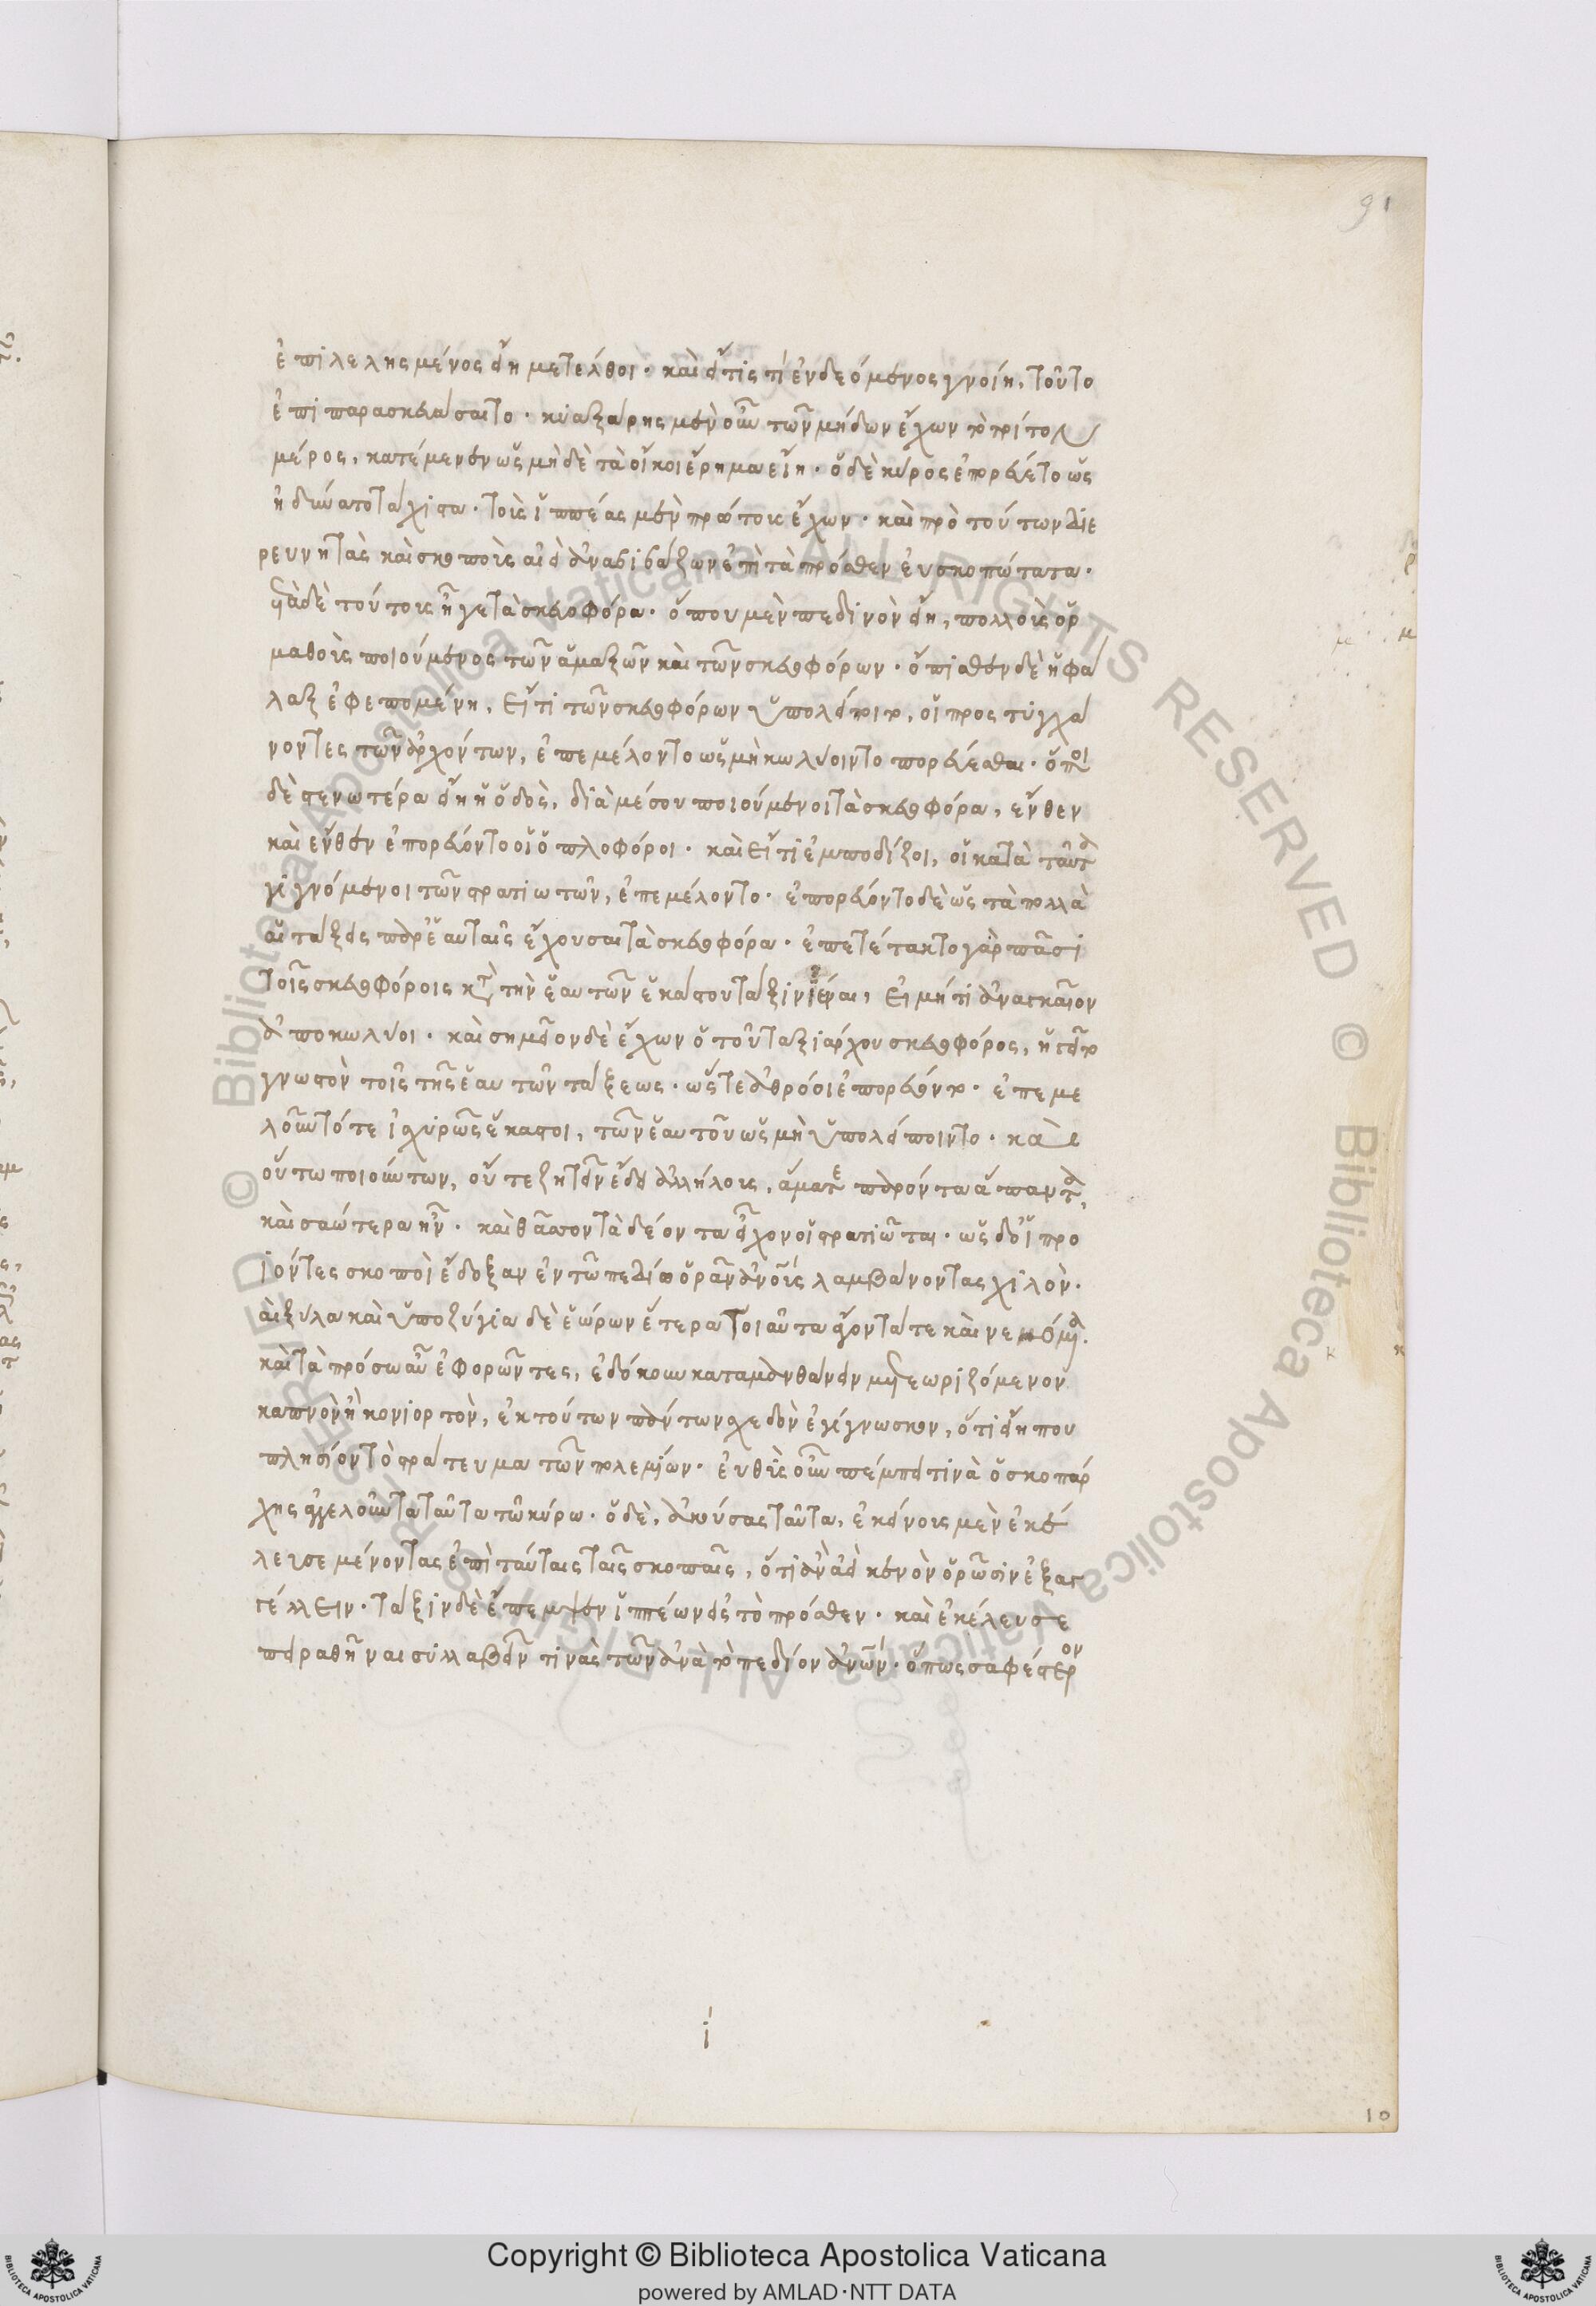 91
ἐπιλελησμένος εἴη μετέλθοι· καὶ εἴ τίς τί ἐνδεόμενος γνοίη, τοῦτο
ἐπιπαρασκευάσαιτο· κυαξάρης μὲν οὖν τῶν μήδων ἔχων τὸ τρίτον
μέρος, κατέμενεν ὡς μὴ δὲ τὰ οἴκοι ἔρημα εἴη· ὁ δὲ κῦρος ἐπορεύετο ὡς
ἠδύνατο τάχιστα· τοὺς ἱππέας μὲν πρώτους ἔχων· καὶ πρὸ τούτων διε
ρευνητὰς καὶ σκοποὺς αἰεὶ ἀναβιβάζων ἐπὶ τὰ πρόσθεν εὐσκοπώτατα·
μετὰ δὲ τούτους ἦγε τὰ σκευοφόρα· ὅπου μὲν πεδινὸν εἴη, πολλοὺς ὁρ
μαθοὺς ποιούμενος τῶν ἁμαξῶν καὶ τῶν σκευοφόρων· ὄπισθεν δὲ ἡ φά
λαξ ἐφεπομένη, εἴ τι τῶν σκευοφόρων ὑπολείποιτο, οἱ προστυγχά
νοντες τῶν ἀρχόντων, ἐπεμέλοντο ὡς μὴ κωλύοιντο πορεύεσθαι· ὅπου
δὲ στενωτέρα εἴη ἡ ὁδὸς, διὰ μέσου ποιούμενοι τὰ σκευοφόρα, ἔνθεν
καὶ ἔνθεν ἐπορεύοντο οἱ ὁπλοφόροι· καὶ εἴ τι ἐμποδίζοι, οἱ κατὰ ταῦτα
γιγνόμενοι τῶν στρατιωτῶν, ἐπεμέλοντο· ἐπορεύοντο δὲ ὡς τὰ πολλὰ
αἱ τάξεις παρ' ἑαυταῖς ἔχουσαι τὰ σκευοφόρα· ἐπετέτακτο γὰρ πᾶσι
τοῖς σκευοφόροις κατὰ τὴν ἑαυτῶν ἑκάστου τάξιν ἰέναι, εἰ μή τι ἀναγκαῖον
ἀποκωλύοι· καὶ σημεῖον δὲ ἔχων ὁ τοῦ ταξιάρχου σκευοφόρος, ἡγεῖτο
γνωστὸν τοῖς τῆς ἑαυτῶν τάξεως· ὥστε ἀθρόοι ἐπορεύοντο· ἐπεμε
λοῦντό τε ἰσχυρῶς ἕκαστοι, τῶν ἑαυτοῦ ὡς μὴ ὑπολείποιντο· καὶ
οὕτω ποιούντων, οὔτε ζητεῖν ἔδει ἀλλήλους, ἅμα τε παρόντα ἅπαντα,
καὶ σαώτερα ἦν· καὶ θᾶττον τὰ δέοντα εἶχον οἱ στρατιῶται· ὡς δ' οἱ προ
ϊόντες σκοποὶ ἔδοξαν ἐν τῶ πεδίω ὁρᾶν ἀνους λαμβάνοντας χιλὸν·
καὶ ξύλα καὶ ὑποζύγια δὲ ἑώρων ἕτερα τοιαῦτα ἄγοντά τε καὶ νεμόμενα·
καὶ τὰ πρόσω αὖ ἐφορῶντες, ἐδόκουν καταμανθάνειν μετεωριζόμενον
καπνὸν ἢ κονιορτὸν, ἐκ τούτων πάντων σχεδὸν ἐγίγνωσκον, ὅτι εἴη που
πλησίον τὸ στράτευμα τῶν πολεμίων· εὐθὺς οὖν πέμπει τινὰ ὁ σκοπάρ
χης ἀγγελοῦντα ταῦτα τῶ κύρω· ὁ δὲ, ἀκούσας ταῦτα, ἐκείνους μὲν ἐκέ
λευσε μένοντας ἐπὶ ταύταις ταῖς σκοπαῖς, ὅτι ἂν ἀεὶ κενὸν ὁρῶσιν ἐξαγ
γέλλειν· τάξιν δὲ ἔπεμψεν ἱππέων εἰς τὸ πρόσθεν· καὶ ἐκέλευσε
πειραθῆναι συλλαβεῖν τινὰς τῶν ἀνὰ τὸ πεδίον ἀνων· ὅπως σαφέστερον
ι
10
Copyright © Biblioteca Apostolica Vaticana
powered by AMLAD·NTT DATA